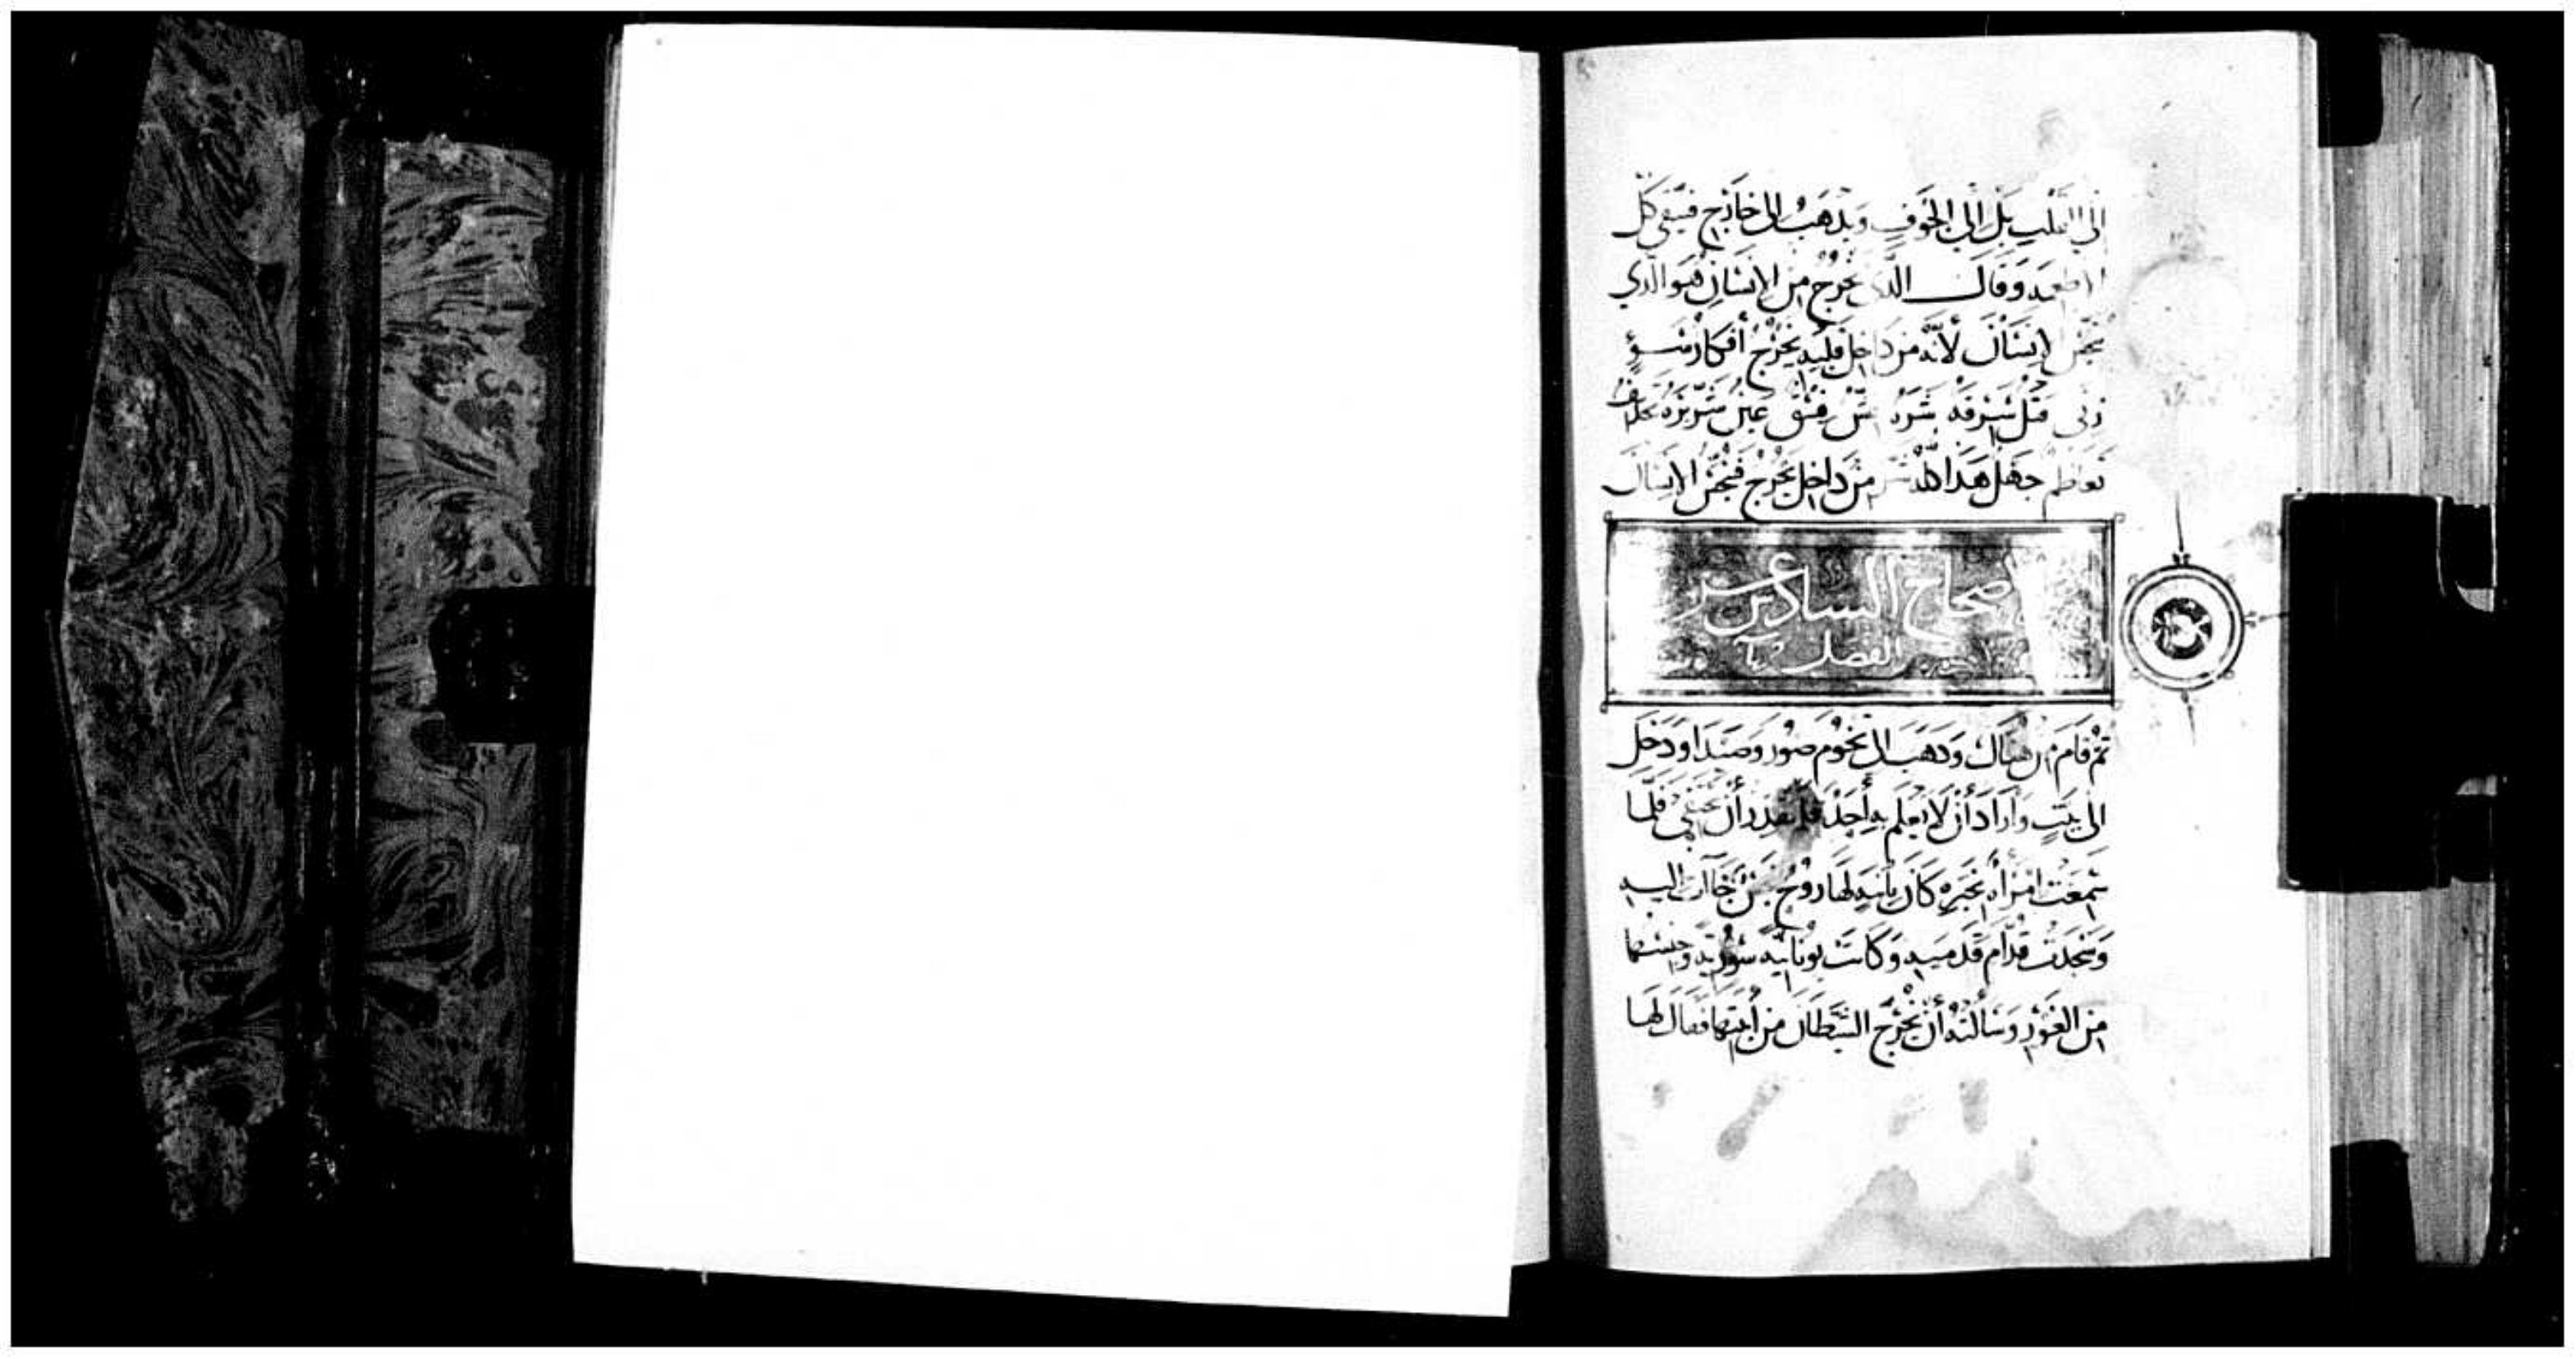 الى القلب بل الى الجوف ويذهب الى خارج فينقي كل
الاطعمه وقال الذى يخرج من الانسان هو الذي
ينجس الانسان لأنه من داخل قلبه يخرج أفكار سوء
زنى قتل سرقه شره فسق عين شريره
تعاظم جهل هذا كله من داخل يخرج فينجس الانسان
اصحاح السادس عشر
الفصل
ثم قام من هناك وذهب الى تخوم صور وصيدا ودخل
الى بيت وأراد أن لا يعلم به أحد فلم يقدر أن يختفي فلما
سمعت امرأه بخبره كان بابنه لها روح نجس جاات اليه
وسجدت قدام قدميه وكانت يونانيه سوريه وجنسها
من الغور وسألته أن يخرج الشيطان من أبنتها فقال لها